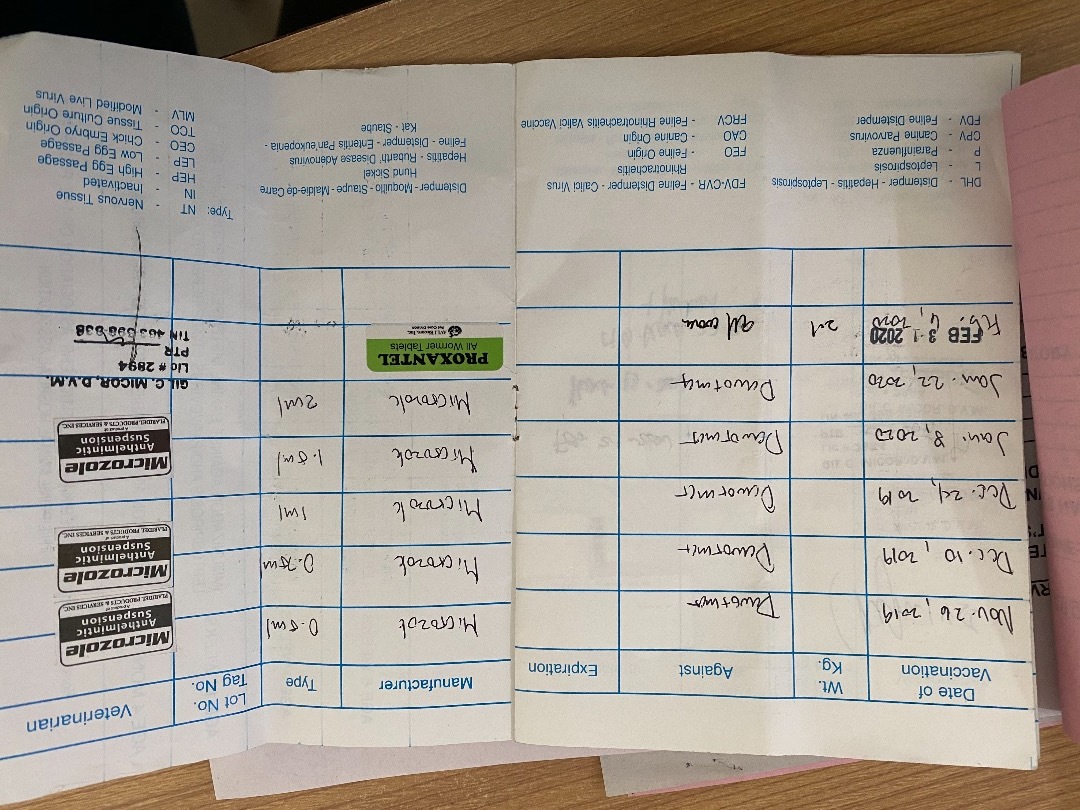 Date of Vaccination
Wt. Kg.
Against
Expiration
Manufacturer
Type
Lot No. Tag No.
Veterinarian
Nov. 26, 2019 Dewormer Microzole 0.5ml
Dec. 10, 2019 Dewormer Microzole 0.75ml
Dec. 24, 2019 Dewormer Microzole 1ml
Jan. 8, 2020 Dewormer Microzole 1.5ml
Jan. 22, 2020 Dewormer Microzole 2ml
Feb. 4, 2020
FEB 3-1 2020
2.1
all worm
Microzole
Anthelmintic
Suspension
A product of
PLARIDEL PRODUCTS & SERVICES INC.
Microzole
Anthelmintic
Suspension
A product of
PLARIDEL PRODUCTS & SERVICES INC.
Microzole
Anthelmintic
Suspension
A product of
PLARIDEL PRODUCTS & SERVICES INC.
PROXANTEL
All Wormer Tablets
GIL C. MICOR, D.V.M.
Lic # 2894
PTR
TIN
DHL - Distemper - Hepatitis - Leptospirosis
L - Leptospirosis
P - Parainfluenza
CPV - Canine Parvovirus
FDV - Feline Distemper
FDV-CVR - Feline Distemper - Calici Virus
Rhinotracheitis
FEO - Feline Origin
CAO - Canine Origin
FRCV - Feline Rhinotracheitis Valici Vaccine
Distemper - Moquillo - Staupe - Maldie-de-Carre
Hund Sickel
Hepatitis - Rubarth Disease Adenovirus
Feline - Distemper - Enteritis Panleukopenia -
Kat - Staube
Type: NT - Nervous Tissue
IN - Inactivated
HEP - High Egg Passage
LEP - Low Egg Passage
CEO - Chick Embryo Origin
TCO - Tissue Culture Origin
MLV - Modified Live Virus